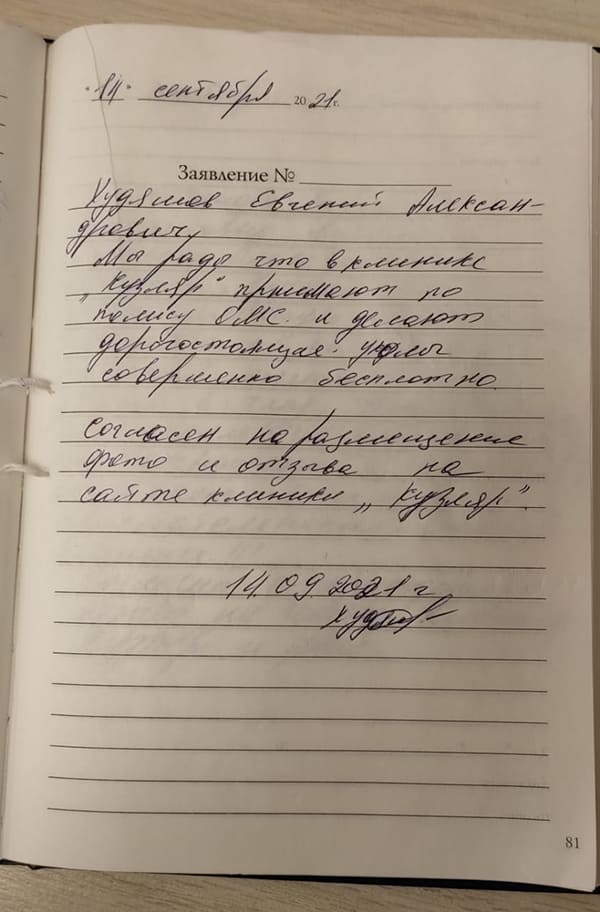 "14" сентября 2021г.
Заявление №
Евгений Алексан-
дрович,
Мы рады что в клинике
„Кузляр" принимают по
полису ОМС. и делают
дорогостоящие. уколы
совершенно бесплатно.
согласен на размещение
фото и отзыва на
сайте клиники „Кузляр".
14.09.2021 г
81